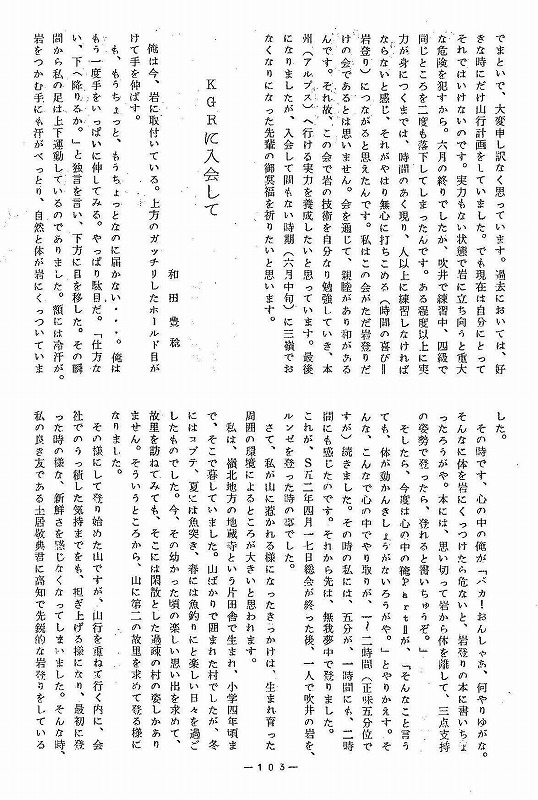 でまといで、大変申し訳なく思っています。過去においては、好
きな時にだけ山行計画をしていました。でも現在は自分にとって
それではいけないのです。実力もない状態で岩に立ち向うと重大
な危険を犯すから。六月の終りでしたか、吹井で練習中、四級で
同じところを二度も落下してしまったんです。ある程度以上に実
力が身につくまでは、時間のあく限り、人以上に練習しなければ
ならないと感じ、それがやはり無心に打ちこめる(時間の喜び=
岩登り)につながると思えたんです。私はこの会がただ岩登りだ
けの会であるとは思いません。会を通じて、親睦があり和がある
んです。それ故、この会で岩の技術を自分なり勉強していき、本
州(アルプス)へ行ける実力を養成したいと思っています。最後
になりましたが、入会して間もない時期(六月中旬)に三嶺でお
なくなりになった先輩の御冥福を祈りたいと思います。
KGRに入会して
和田豊稔
俺は今、岩に取付いている。上方のガッチリしたホールド目が
けて手を伸ばす。
も、もうちょっと、もうちょっとなのに届かない・・・。俺は
もう一度手をいっぱいに伸してみる。やっぱり駄目だ。「仕方な
い、下へ降りるか。」と独言を言い、下方に目を移した。その瞬
間から私の足は上下運動しているのでありました。額には冷汗が。
岩をつかむ手にも汗がべっとり、自然と体が岩にくっついていま
した。
その時です、心の中の俺が「バカ!おんしゃあ、何やりゆがな。
そんなに体を岩にくっつけたら危ないと、岩登りの本に書いちょ
ったろうがや。本には、思い切って岩から体を離して、三点支持
の姿勢で登ったら、登れると書いちゅうぞ。」
そしたら、今度は心の中の俺PartⅡが、「そんなこと言う
ても、体が動かんきしょうがないろうがや。」とやりかえす。そ
んな、こんなで心の中でやり取りが、一/二時間(正味五分位で
すが)続きました。その時の私には、五分が、一時間にも、二時
間にも感じたのです。それから先は、無我夢中で登りました。
これが、S五二年四月一七日総会が終った後、一人で吹井の岩を、
ルンゼを登った時の事でした。
さて、私が山に惹かれる様になったきっかけは、生まれ育った
周囲の環境によるところが大きいと思われます。
私は、嶺北地方の地蔵寺という片田舎で生まれ、小学四年頃ま
で、そこで暮していました。山ばかりで囲まれた村でしたが、冬
にはコブテ、夏には魚突き、春には魚釣りにと楽しい日々を過ご
したものでした。今、その幼かった頃の楽しい思い出を求めて、
故里を訪ねてみても、そこには閑散とした過疎の村の姿しかあり
ません。そういうところから、山に第二の故里を求めて登る様に
なりました。
その様にして登り始めた山ですが、山行を重ねて行く内に、会
社でのうっ積した気持までをも、担ぎ上げる様になり、最初に登
った時の様な、新鮮さを感じなくなってしまいました。そんな時、
私の良き友である土居敬典君に高知で先鋭的な岩登りをしている
—103—